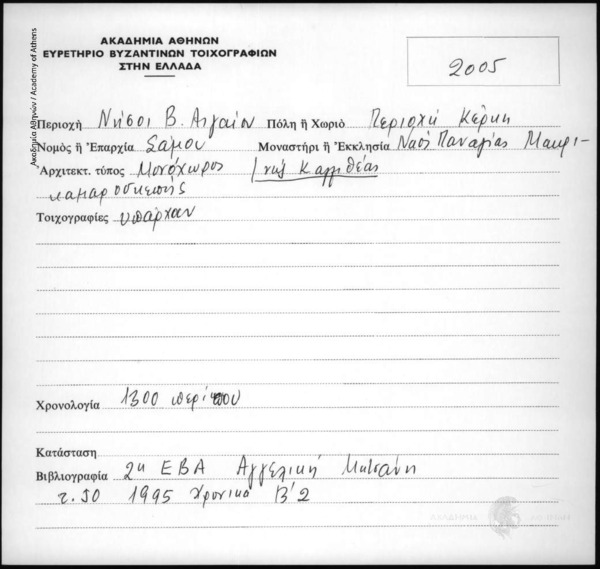 ΑΚΑΔΗΜΙΑ ΑΘΗΝΩΝ
ΕΥΡΕΤΗΡΙΟ ΒΥΖΑΝΤΙΝΩΝ ΤΟΙΧΟΓΡΑΦΙΩΝ
ΣΤΗΝ ΕΛΛΑΔΑ
2005
Ακαδημία Αθηνών / Academy of Athens
Περιοχή Νήσοι Β. Αιγαίου Πόλη ἤ Χωριό Περιοχή Κέρκη
Νομός ἤ Ἐπαρχία Σάμου Μοναστήρι ἤ Ἐκκλησία Ναός Παναγίας Μακρι-
Ἀρχιτεκτ. τύπος Μονόχωρος νής Καλλιθέας
καμαροσκεπής
Τοιχογραφίες υπάρχουν
Χρονολογία 1300 περίπου
Κατάσταση
Βιβλιογραφία 2η ΕΒΑ Αγγελική Μιτσάνη
τ. 50 1995 Χρονικά Β'2
ΑΚΑΔΗΜΙΑ ΑΘΗΝΩΝ